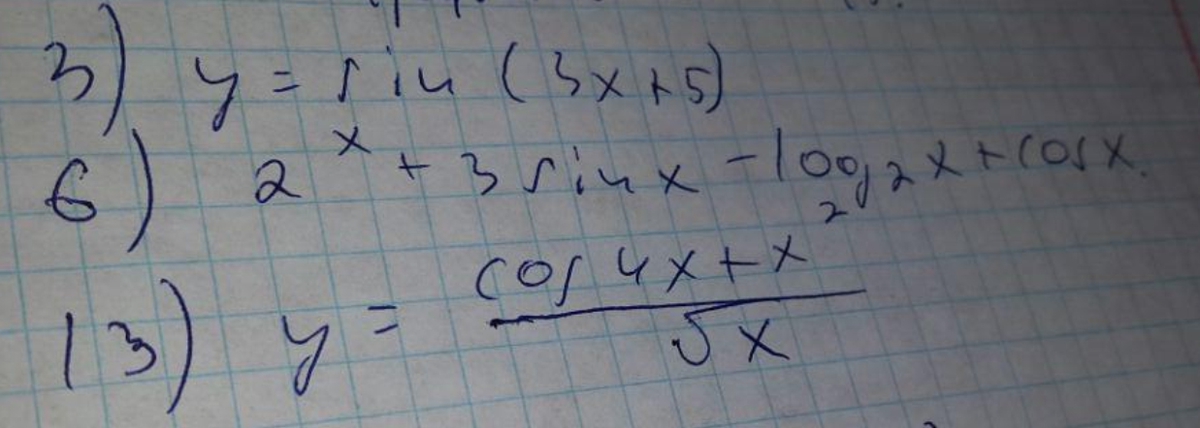 3) y = sin (3x+5)
6) 2^x + 3 sin x - log₂x + cos x.
13) y = (cos 4x + x²) / √x